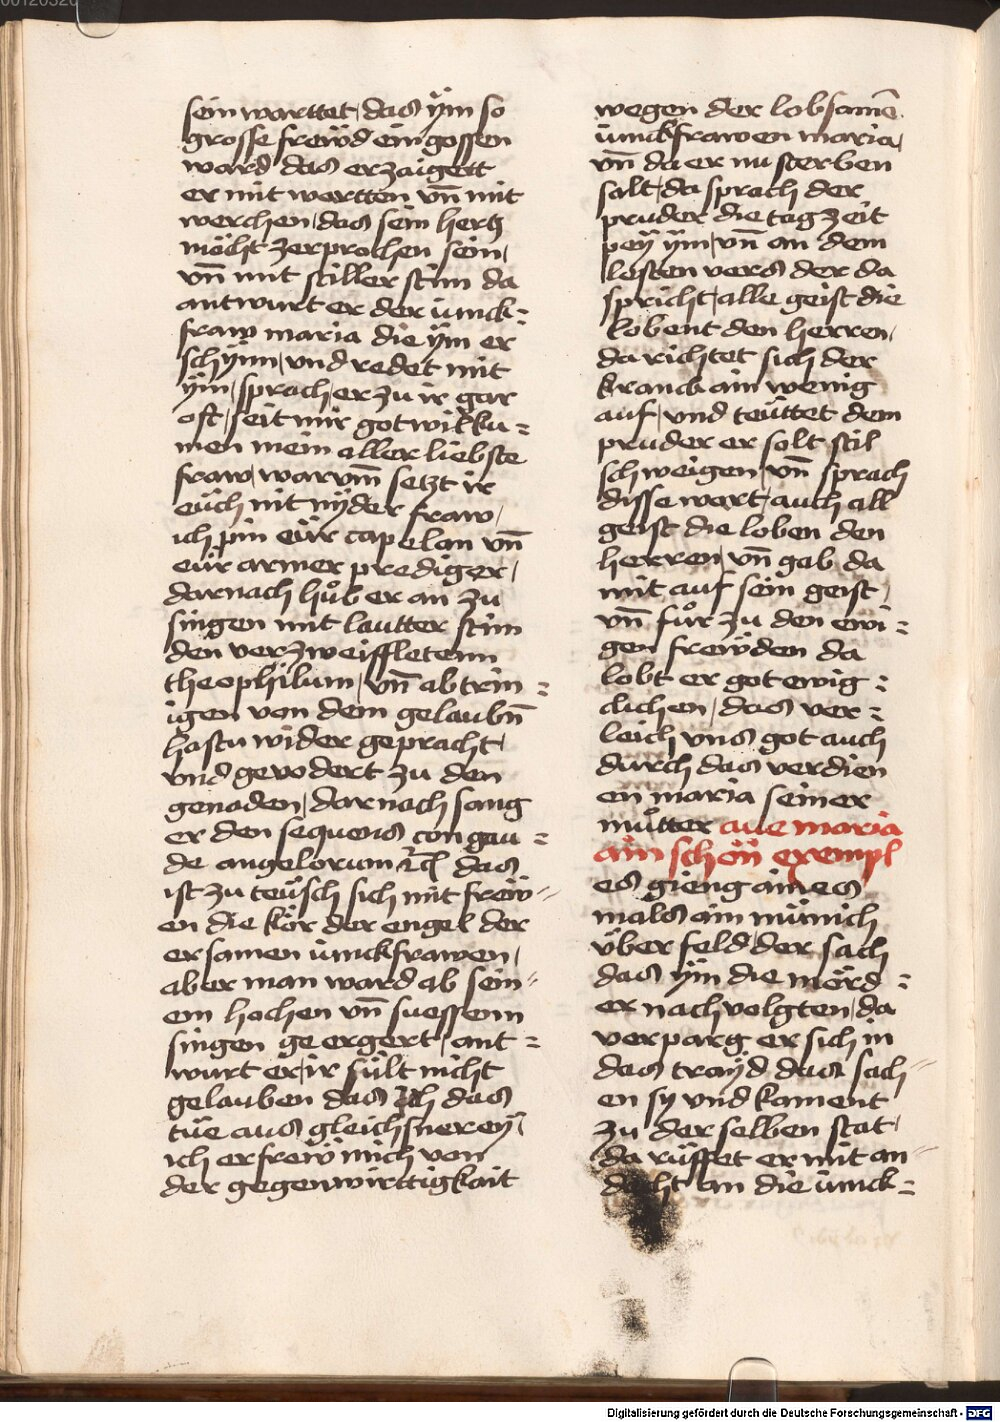 sein warttet, das ÿm so
grosse freẅd ein gossen
ward das er zaigett
er mit wortten vn̄ mit
werchen, das sein hertz
mo̊cht zerprochen sein,
vn̄ mit stiller stim da
antwurt er der iunck-
fraw maria die ÿm er
schÿnn, vnd redet mit
ÿm, sprach er zu ir gar
oft, seit mir got wilku-
men mein aller liebste
fraw, warvm̄ setzt ir
eüch nit nÿder fraw,
ich pin eür capelan vn̄
eür armer prediger,
darnach hůb er an zu
singen mit lautter stim
den verzweiffletenn
theophilum, vn̄ abtrin-
igen von dem gelaubn̄
hastu wider gepracht,
vnd gevodert zu den
genaden, darnach sang
er den sequens congau-
de angelorum rc̄ das
ist zu teüsch sich mit freẅ-
en die kör der engel der
ersamen iunckfrawen,
aber man ward ab sein-
em hochen vn̄ suessenn
singen ge ergert, ant-
wurt er, ir sült nicht
gelauben das ich das
tüe aus gleichsnereÿ,
ich erfreẅ mich von
der gegenwirttigkait
wegen der lobsamē
iunckfrawen maria,
vn̄ da er nu sterben
solt, da sprach der
pruder die tag zeit
peÿ ÿm, vn̄ an dem
lesten vers der da
spricht, alle geist die
lobent den herren,
da richtet sich der
kranck ain wenig
auf, vnd teüttet dem
pruder er solt stil
schweigen, vn̄ sprach
disse wort, auch all
geist die loben den
herren, vn̄ gab da
mit auf sein geist,
vn̄ fůr zu den ewi-
gen freẅden da
lobt er got ewig-
clichen, das ver-
leich vns got auch
durch das verdien
en maria seiner
můtter aue maria
ain schön exempl
es gieng aines
mals ain münich
über feld, der sach
das ÿm die mörd-
er nach volgten, da
verparg er sich in
das traÿd, das sach-
en sy vnd kament
zu der selben stat,
da rüffet er mit an-
dacht an die iunck-
Digitalisierung gefördert durch die Deutsche Forschungsgemeinschaft - DFG